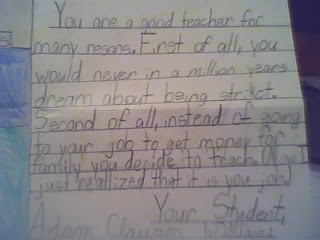 You are a good teacher for
many resons. First of all, you
would never in a million years
dream about being strikct.
Second of all, instead of going
to your job to get money for
family you decide to teach.
just reallized that it is you job.
Your Student,
Adam